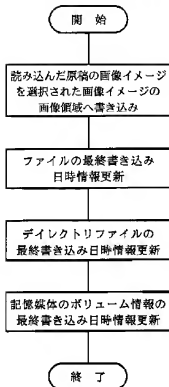 開 始
読み込んだ原稿の画像イメージ
を選択された画像イメージの
画像領域へ書き込み
ファイルの最終書き込み
日時情報更新
デイレクトリファイルの
最終書き込み日時情報更新
記憶媒体のボリューム情報の
最終書き込み日時情報更新
終 了